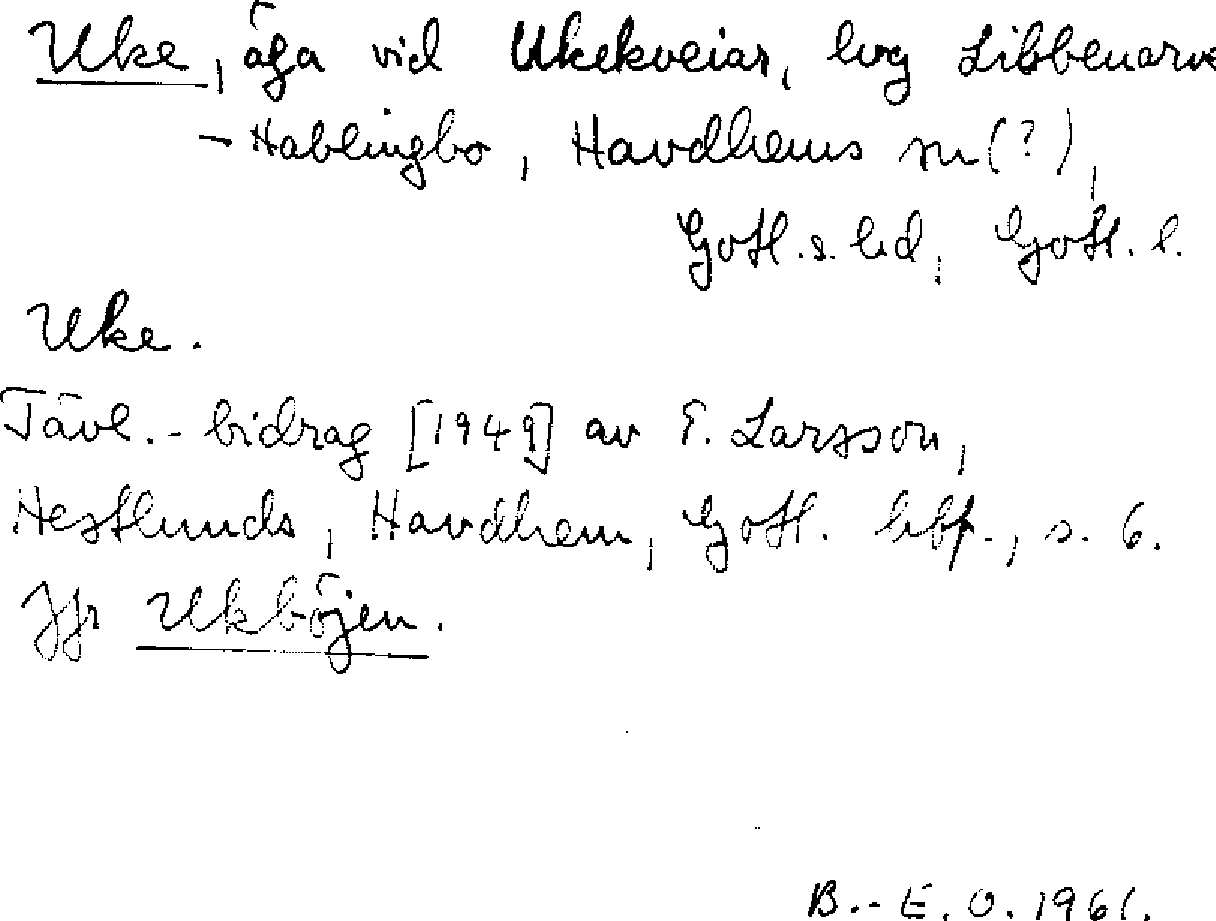 Uke, äga vid Ukekveiar, lvg Libbenarve
- Hablingbo, Havdhems sn (?),
Gotl. s. hd, Gotl. l.
Uke.
Tävl.- bidrag [1949] av E. Larsson,
Hestlunds, Havdhem, Gotl. hbf., s. 6.
Jfr Ukböjen.
B.-E. O. 1961.